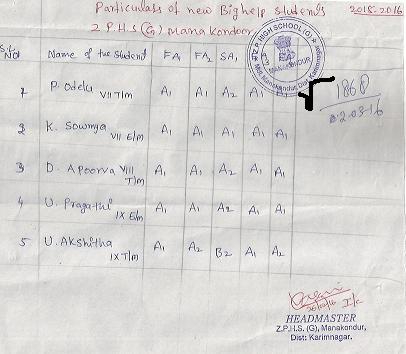 Particulars of new Big help students 2015-2016
Z P.H.S (G) Manakondur
S.L NO Name of the Student FA1 FA2 SA1
1 P. Odelu VII T/m A1 A1 A2 A1 A1
2 K. Sowmya VII E/m A1 A1 A1 A1 A1
3 D. Apoorva VIII T/m A1 A1 A2 A1 A1
4 U. Pragathi IX E/m A1 A1 A2 A1 A1
5 U. Akshitha IX T/m A1 A2 B2 A1 A2
Z.P. HIGH SCHOOL (G)
MANAKONDUR
Mdl. Manakondur, Dist. Karimnagar.
1868
02.03.16
I/c
HEADMASTER
Z.P.H.S. (G), Manakondur,
Dist: Karimnagar.